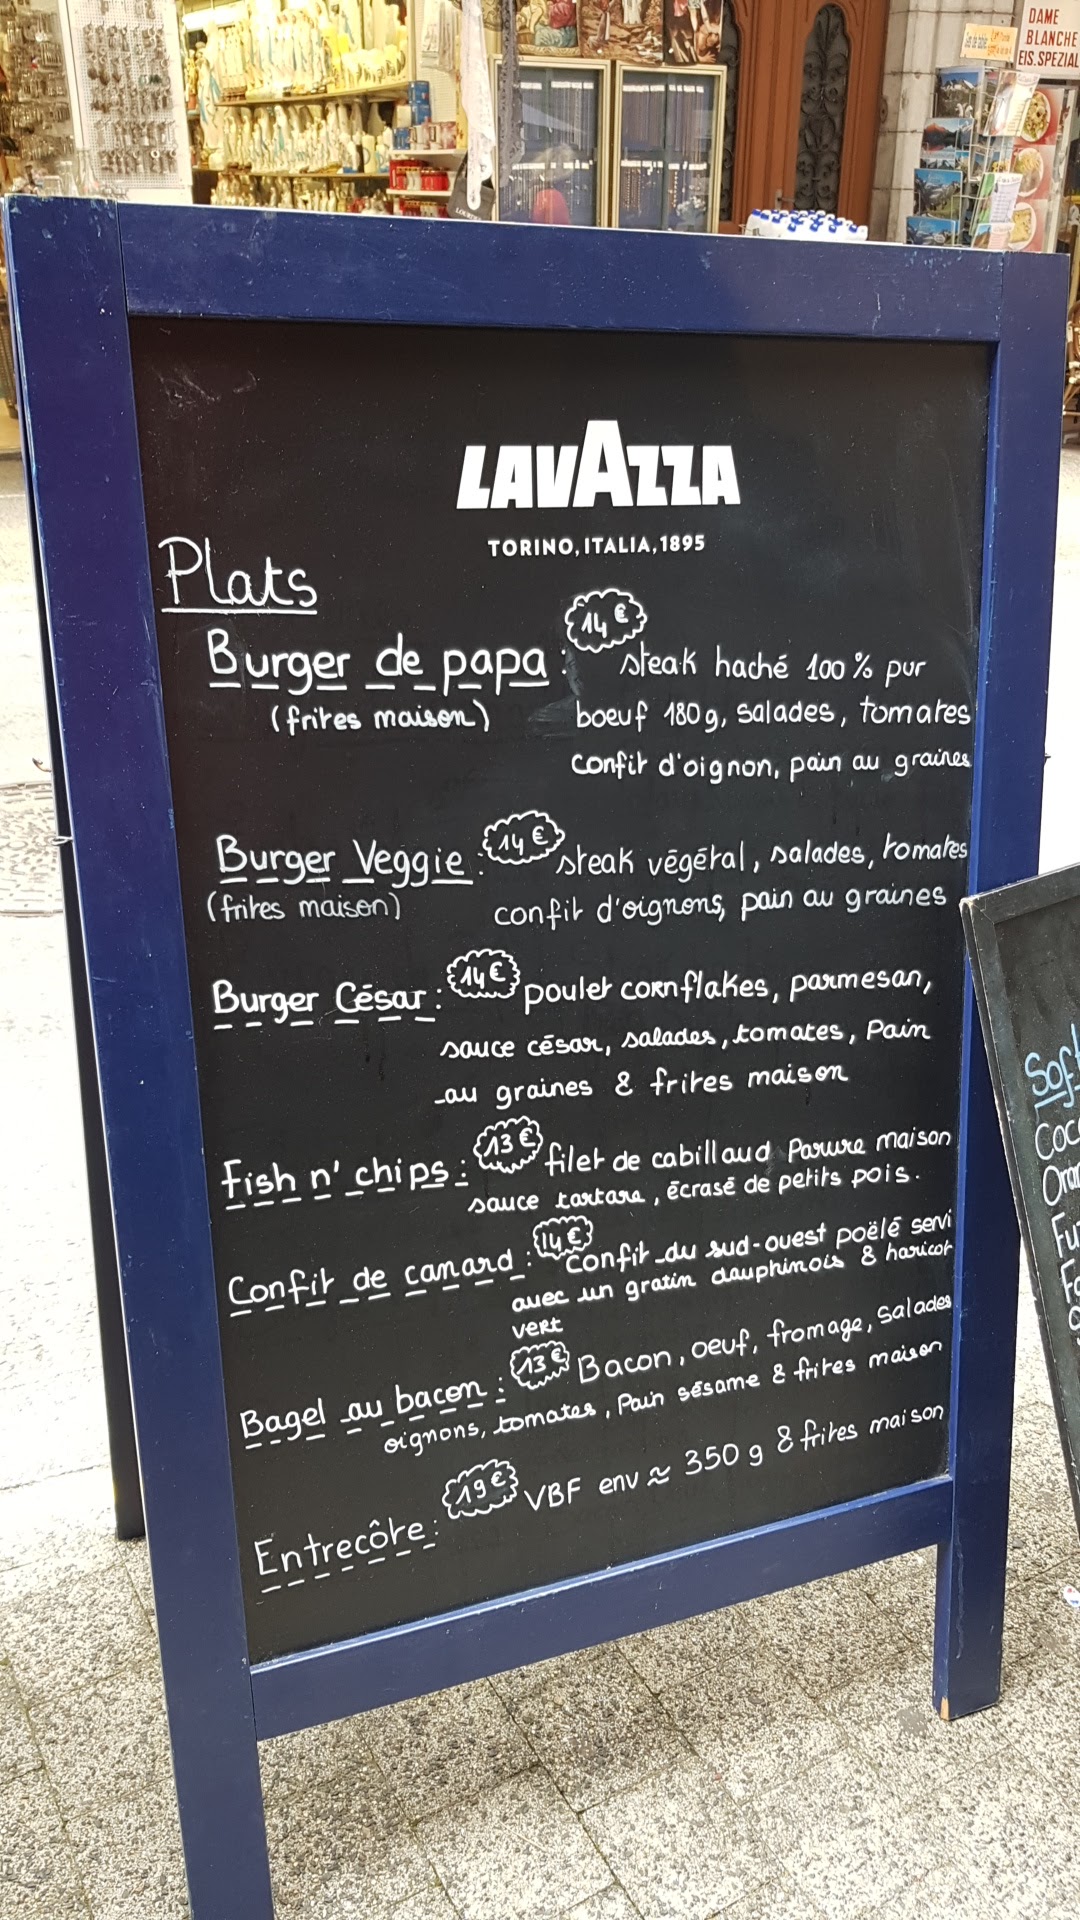 DAME
BLANCHE
EIS.SPEZIAL
LAVAZZA
TORINO, ITALIA, 1895
Plats
Burger de papa : 14€ steak haché 100% pur
(frites maison) boeuf 180g, salades, tomates
confit d'oignon, pain au graines
Burger Veggie : 14€ steak végétal, salades, tomates
(frites maison) confit d'oignons, pain au graines
Burger César : 14€ poulet cornflakes, parmesan,
sauce césar, salades, tomates, Pain
au graines & frites maison
Fish n' chips : 13€ filet de cabillaud Panure maison
sauce tartare, écrasé de petits pois.
Confit de canard : 14€ Confit du sud-ouest poëlé servi
avec un gratin dauphinois & haricot
vert
Bagel au bacon : 13€ Bacon, oeuf, fromage, salades
oignons, tomates, Pain sésame & frites maison
Entrecôte : 19€ VBF env ≈ 350 g & frites maison